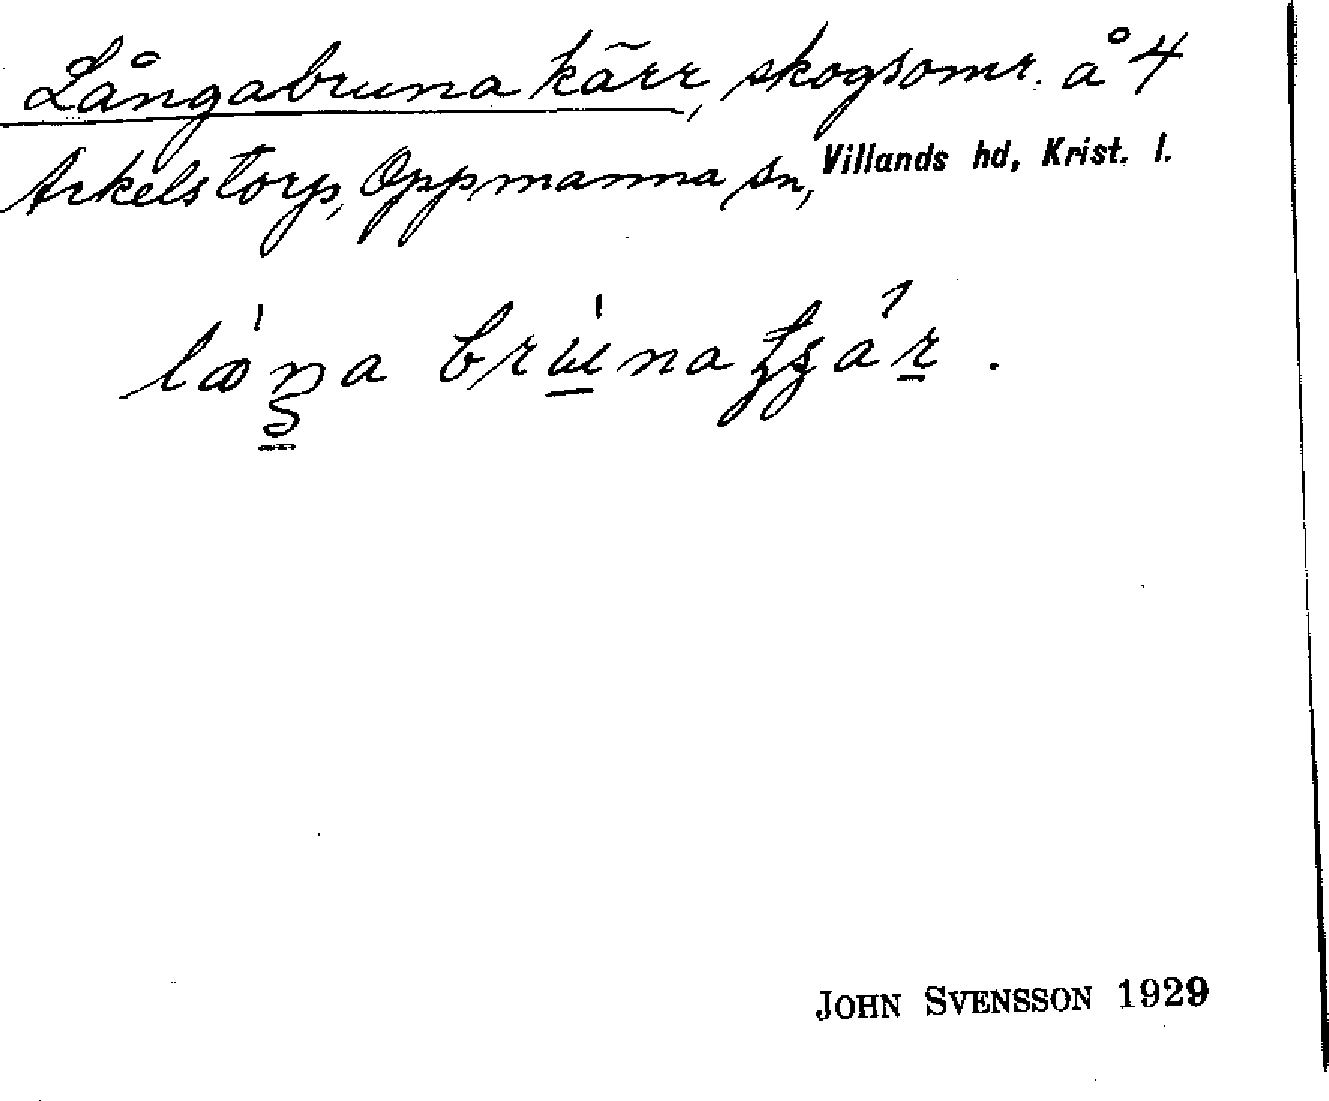 Långabruna kärr, skogsomr. å 4
Arkelstorp, Oppmanna sn, Villands hd, Krist. l.
JOHN SVENSSON 1929